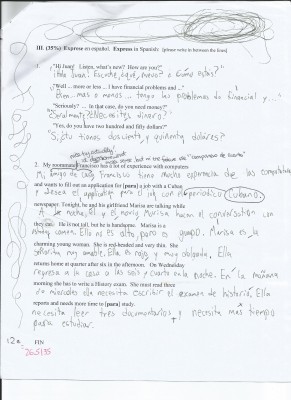 III. (35%) Express en español. Express in Spanish: [please write in between the lines]
1. "Hi Juan! Listen, what's new? How are you?"
¡Hola Juan! Escucha, ¿qué nuevo? o Cómo estás?
"Well ... more or less. I have financial problems and ..."
Bien...mas o menos ... tengo los problemas de financial y ..."
"Seriously? ... In that case, do you need money?"
¿Necesites dinero?
"Yes, do you have two hundred and fifty dollars?"
"Sí, ¿tu tienes doscientos y quinienta dolares?
"compañero de cuarto"
2. My roommate Francisco has a lot of experience with computers
Mi amigo de Francisco tiene mucho experiencia con las computadoras
and wants to fill out an application for [para] a job with a Cuban
y desea el para el con el periódico Cubano.
newspaper. Tonight, he and his girlfriend Marisa are talking while
noche, él y el novia Marisa hacen el conversation con
they eat. He is not tall, but he is handsome. Marisa is a
comen. Ella no es alto, pero es guapo. Marisa es la
charming young woman. She is red-headed and very thin. She
señorita muy amable. Ella es roja y muy delgada. Ella
returns home at quarter after six in the afternoon. On Wednesday
regresa a la casa a las seis y cuarto en la noche. En la mañana
morning she has to write a History exam. She must read three
de miércoles ella necesita escribir el examen de historia. Ella
reports and needs more time to [para] study.
necesita leer tres documentarios y necesita mas tiempo
para estudiar.
FIN